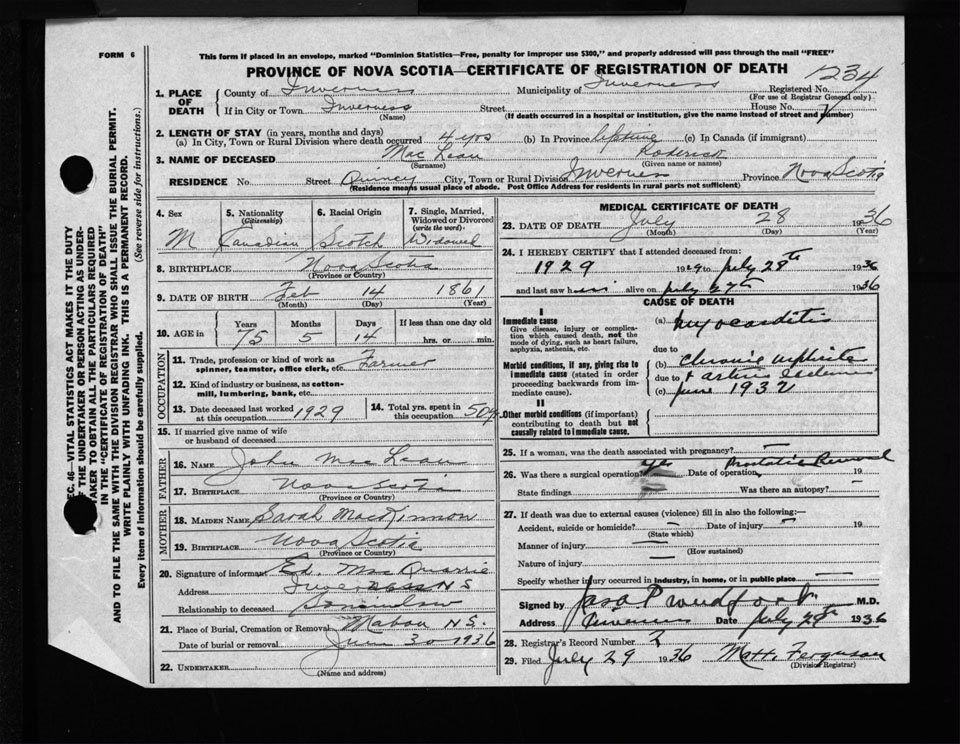 FORM 6
This form if placed in an envelope, marked "Dominion Statistics—Free, penalty for improper use $300," and properly addressed will pass through the mail "FREE"
PROVINCE OF NOVA SCOTIA—CERTIFICATE OF REGISTRATION OF DEATH 1234
1. PLACE OF DEATH
County of Inverness Municipality of Inverness Registered No.
(For use of Registrar General only)
If in City or Town Inverness Street House No.
(Name) (If death occurred in a hospital or institution, give the name instead of street and number)
2. LENGTH OF STAY (in years, months and days)
(a) In City, Town or Rural Division where death occurred 4 yrs (b) In Province lifetime (c) In Canada (if immigrant)
3. NAME OF DECEASED Mac Lean Roderick
(Surname) (Given name or names)
RESIDENCE No Street Quincy City, Town or Rural Division Inverness Province Nova Scotia
(Residence means usual place of abode. Post Office Address for residents in rural parts not sufficient)
4. Sex
M
5. Nationality
(Citizenship)
Canadian
6. Racial Origin
Scotch
7. Single, Married, Widowed or Divorced
(write the word)
Widowed
8. BIRTHPLACE Nova Scotia
(Province or Country)
9. DATE OF BIRTH Feb 14 1861
(Month) (Day) (Year)
10. AGE in
Years Months Days If less than one day old
75 5 14 hrs. or min.
OCCUPATION
11. Trade, profession or kind of work as Farmer
spinner, teamster, office clerk, etc.
12. Kind of industry or business, as cotton-
mill, lumbering, bank, etc.
13. Date deceased last worked
at this occupation 1929
14. Total yrs. spent in
this occupation 50 yrs
15. If married give name of wife
or husband of deceased
FATHER
16. NAME John Mac Lean
17. BIRTHPLACE Nova Scotia
(Province or Country)
MOTHER
18. MAIDEN NAME Sarah MacKinnon
19. BIRTHPLACE Nova Scotia
(Province or Country)
20. Signature of informant Ed. Mac Quarrie
Address Inverness N S
Relationship to deceased Son in law
21. Place of Burial, Cremation or Removal Mabou N S.
Date of burial or removal 30 1936
22. UNDERTAKER
(Name and address)
MEDICAL CERTIFICATE OF DEATH
23. DATE OF DEATH July 28 1936
(Month) (Day) (Year)
24. I HEREBY CERTIFY that I attended deceased from:
1929 1929 to July 28th 1936
and last saw him alive on July 27th 1936
CAUSE OF DEATH
I
Immediate cause
Give disease, injury or complica-
tion which caused death, not the
mode of dying, such as heart failure,
asphyxia, asthenia, etc.
(a) Myocarditis
due to
Morbid conditions, if any, giving rise to
immediate cause (stated in order
proceeding backwards from im-
mediate cause).
(b) Chronic nephritis
due to
(c) June 1932
II
Other morbid conditions (if important)
contributing to death but not
causally related to immediate cause.
25. If a woman, was the death associated with pregnancy? —
26. Was there a surgical operation? yes Date of operation Prostatic Removal 19
State findings Was there an autopsy? —
27. If death was due to external causes (violence) fill in also the following:—
Accident, suicide or homicide? — Date of injury — 19
(State which)
Manner of injury —
(How sustained)
Nature of injury —
Specify whether injury occurred in industry, in home, or in public place —
Signed by Jas. A. Proudfoot M.D.
Address Inverness Date July 29th 1936
28. Registrar's Record Number 7
29. Filed July 29 1936 Matt. Ferguson
(Division Registrar)
SEC. 46—VITAL STATISTICS ACT MAKES IT THE DUTY
OF THE UNDERTAKER OR PERSON ACTING AS UNDER-
TAKER TO OBTAIN ALL THE PARTICULARS REQUIRED
IN THE "CERTIFICATE OF REGISTRATION OF DEATH"
AND TO FILE THE SAME WITH THE DIVISION REGISTRAR WHO SHALL ISSUE THE BURIAL PERMIT.
WRITE PLAINLY WITH UNFADING INK. THIS IS A PERMANENT RECORD.
Every item of information should be carefully supplied. (See reverse side for instructions.)